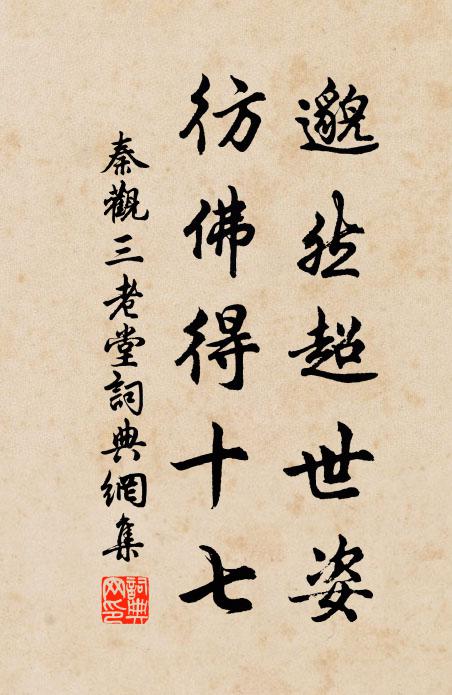 邈然超世姿
彷佛得十七
秦觀三老堂詞典網集
詞典網印